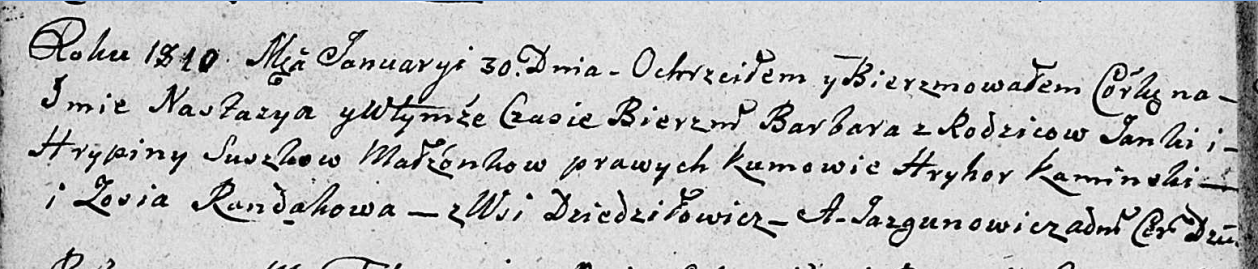 Roku 1810 Mςa Januaryi 30. Dnia - Ochrzciłem y Bierzmowałem Córkę na -
Imie Nastazya y Wtymże Czasie Bierzm̃ Barbara z Rodzicow Janki i -
Hrypiny Suszkow Małżonkow prawych Kumowie Hryhor Kaminski -
i Zosia Randakowa - z Wsi Dziedziłowicz - A. Jazgunowicz adm̃